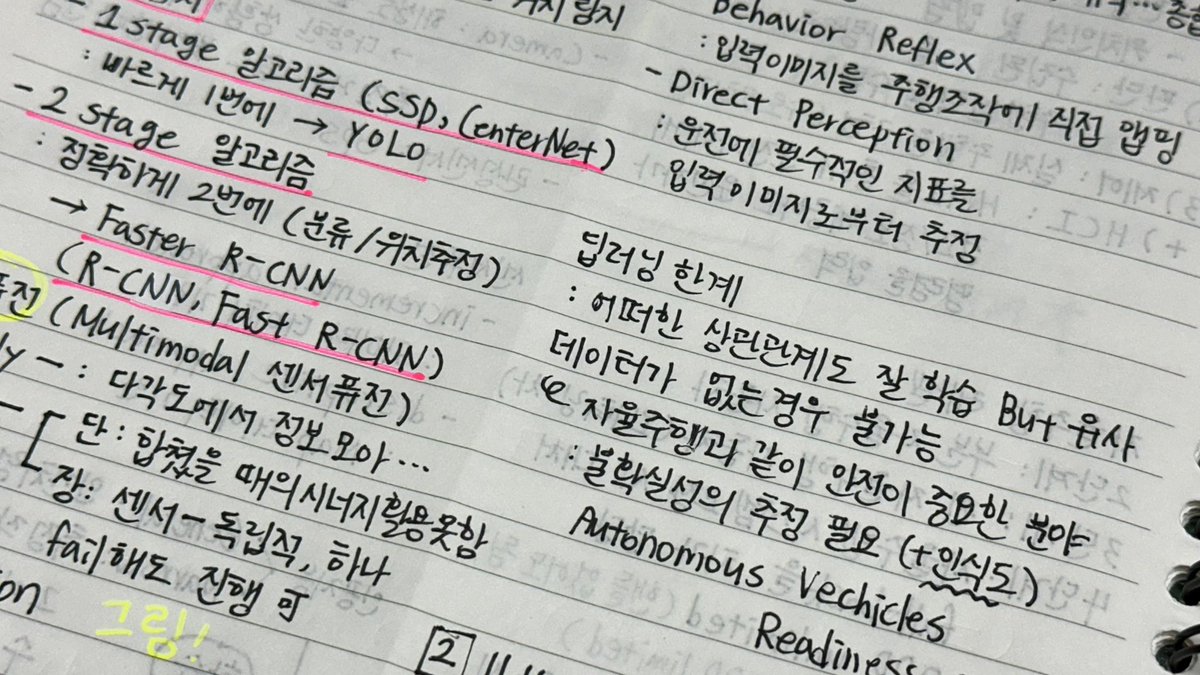 위치탐지
- 1 stage 알고리즘 (SSD, CenterNet)
: 빠르게 1번에 → YOLO
- 2 stage 알고리즘
: 정확하게 2번에 (분류/위치추정)
→ Faster R-CNN
(R-CNN, Fast R-CNN)
퓨전 (Multimodal 센서퓨전)
ly - : 다각도에서 정보모아...
- [ 단 : 합쳤을 때의 시너지 활용못함
장 : 센서 - 독립적, 하나
fail해도 진행 可
그림!
Behavior Reflex
: 입력이미지를 주행조작에 직접 맵핑
- Direct Perception
: 운전에 필수적인 지표를
입력이미지로부터 추정
딥러닝 한계
: 어떠한 상관관계도 잘 학습 But 유사
데이터가 없는 경우 불가능
자율주행과 같이 안전이 중요한 분야
: 불확실성의 추정 필요 (+인식도)
Autonomous Vechicles
Readiness
2